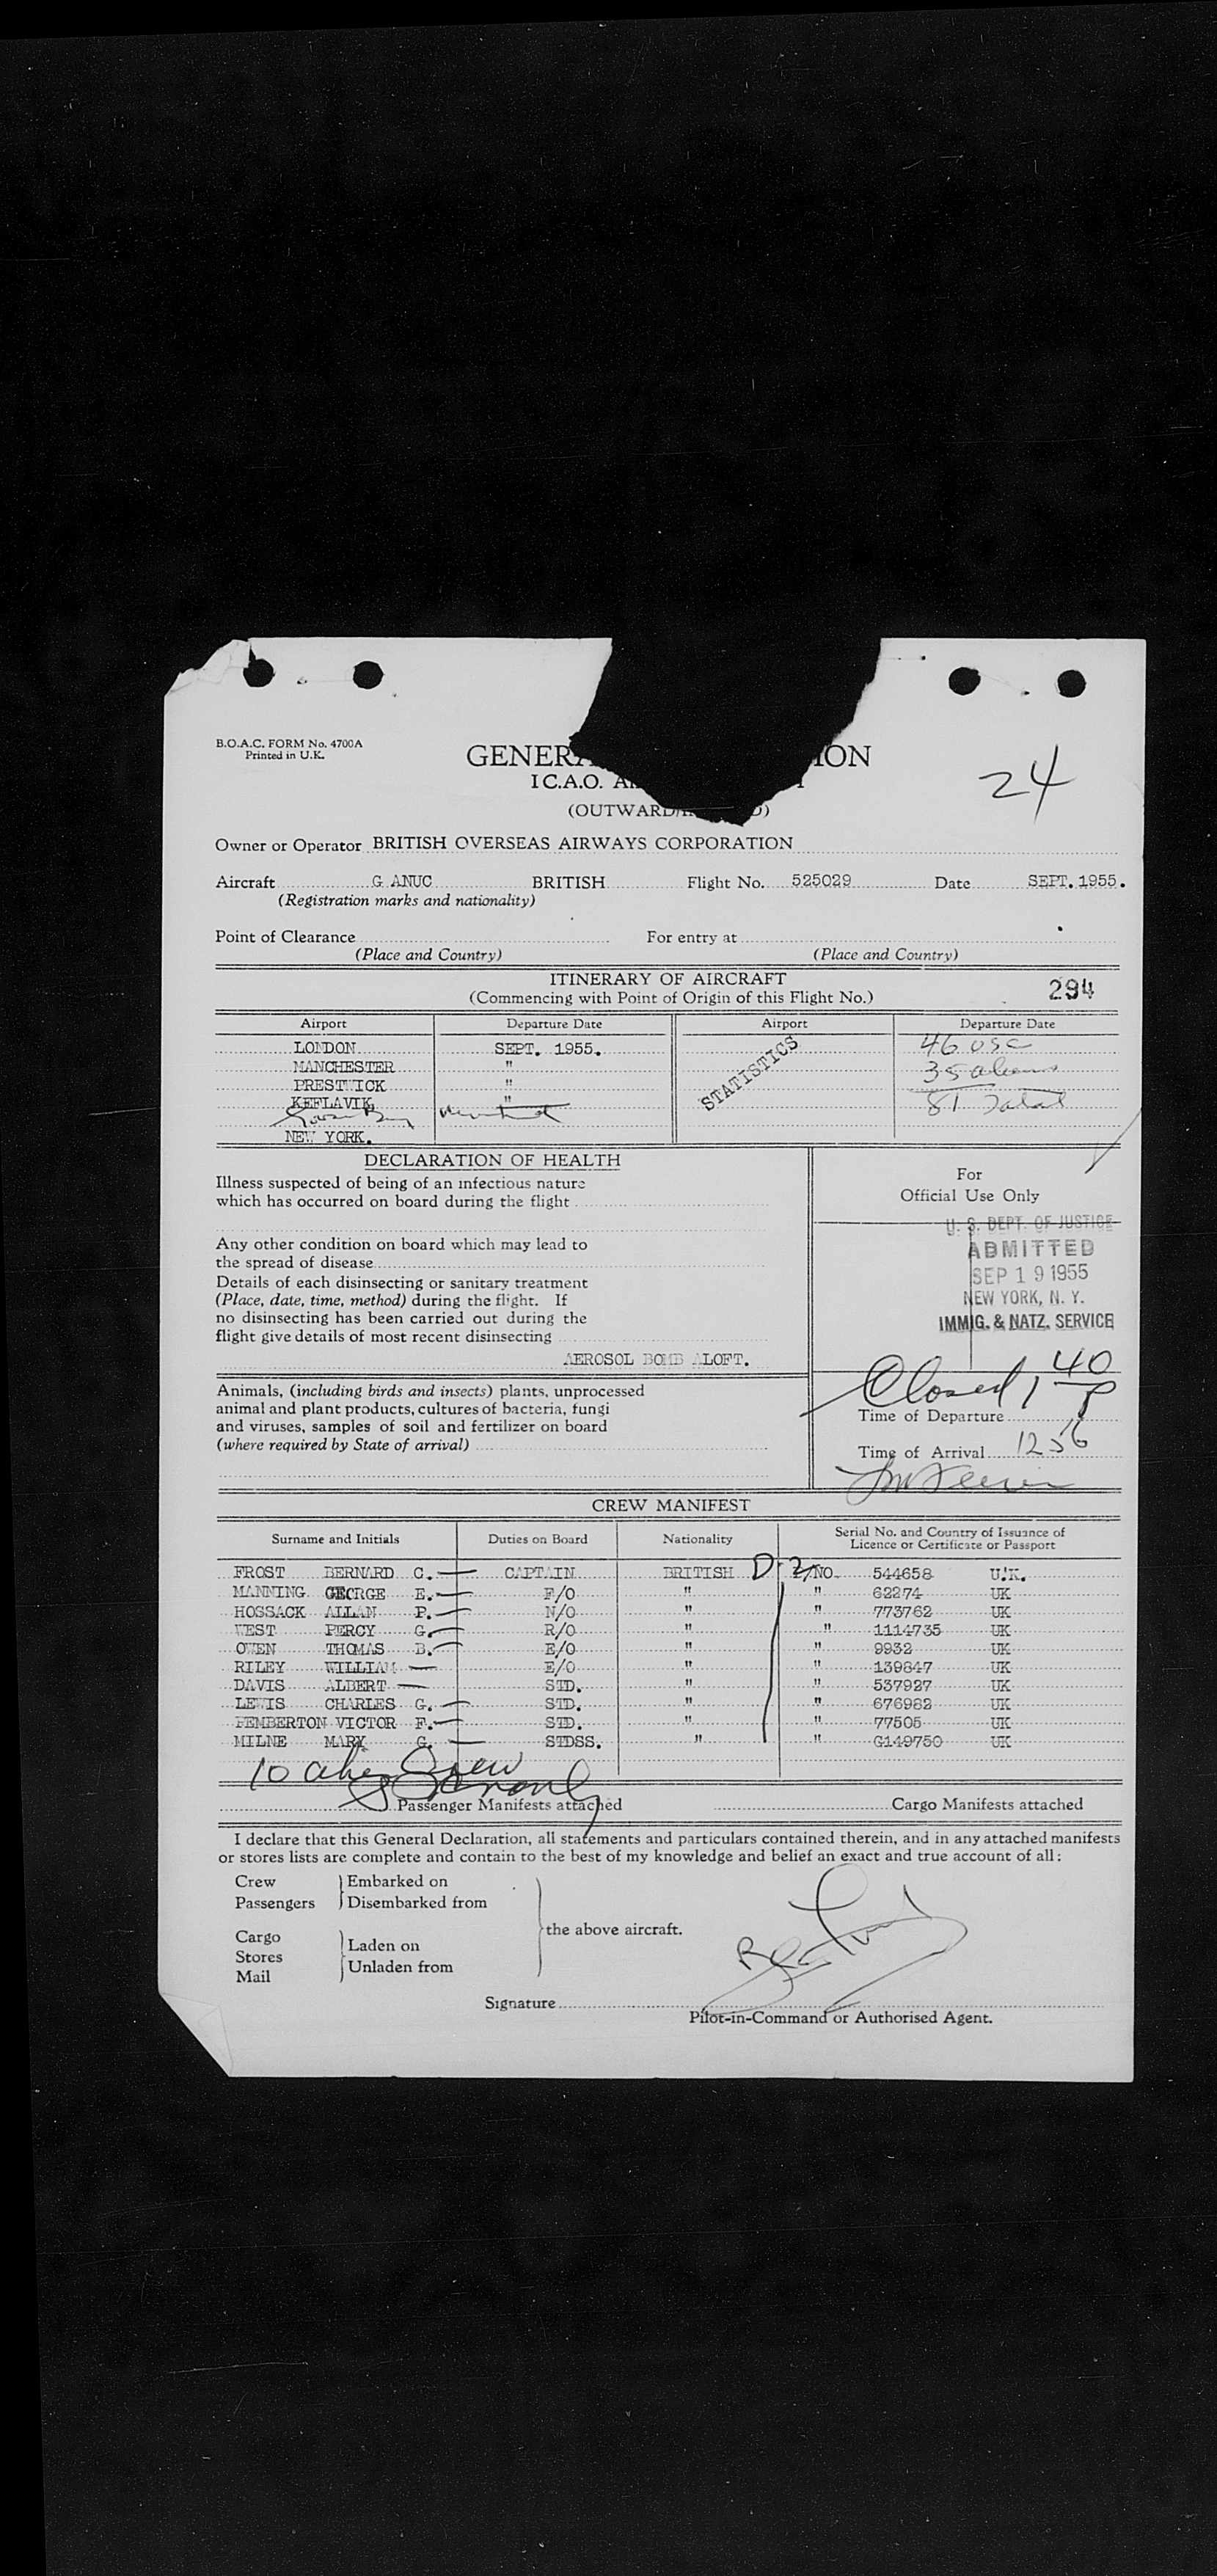 B.O.A.C. FORM No. 4700A
Printed in U.K.
GENERA ION
I C.A.O.
(OUTWARD
24
Owner or Operator BRITISH OVERSEAS AIRWAYS CORPORATION
Aircraft G ANUC BRITISH Flight No. 525029 Date SEPT. 1955.
(Registration marks and nationality)
Point of Clearance For entry at
(Place and Country) (Place and Country)
ITINERARY OF AIRCRAFT
(Commencing with Point of Origin of this Flight No.) 294
Airport Departure Date Airport Departure Date
LONDON SEPT. 1955. STATISTICS 46 USC
MANCHESTER " 35 aliens
PRESTWICK " 81 Total
KEFLAVIK "
Goose Bay
NEW YORK.
DECLARATION OF HEALTH
Illness suspected of being of an infectious nature
which has occurred on board during the flight
Any other condition on board which may lead to
the spread of disease
Details of each disinsecting or sanitary treatment
(Place, date, time, method) during the flight. If
no disinsecting has been carried out during the
flight give details of most recent disinsecting
AEROSOL BOMB ALOFT.
Animals, (including birds and insects) plants, unprocessed
animal and plant products, cultures of bacteria, fungi
and viruses, samples of soil and fertilizer on board
(where required by State of arrival)
For
Official Use Only
U. S. DEPT. OF JUSTICE
ADMITTED
SEP 19 1955
NEW YORK, N. Y.
IMMIG. & NATZ. SERVICE
Closed 1 40 P
Time of Departure
Time of Arrival 1256
CREW MANIFEST
Surname and Initials Duties on Board Nationality Serial No. and Country of Issuance of
Licence or Certificate or Passport
FROST BERNARD C. CAPTAIN BRITISH D-2 NO. 544658 U.K.
MANNING GEORGE E. F/O " " 62274 UK
HOSSACK ALLAN P. N/O " " 773762 UK
WEST PERCY G. R/O " " 1114735 UK
OWEN THOMAS B. E/O " " 9932 UK
RILEY WILLIAM E/O " " 139847 UK
DAVIS ALBERT STD. " " 537927 UK
LEWIS CHARLES G. STD. " " 676982 UK
PEMBERTON VICTOR F. STD. " " 77505 UK
MILNE MARY G. STDSS. " " G149750 UK
10 alien Crew
Passenger Manifests attached Cargo Manifests attached
I declare that this General Declaration, all statements and particulars contained therein, and in any attached manifests
or stores lists are complete and contain to the best of my knowledge and belief an exact and true account of all:
Crew Embarked on
Passengers Disembarked from
the above aircraft.
Cargo Laden on
Stores Unladen from
Mail
Signature
Pilot-in-Command or Authorised Agent.